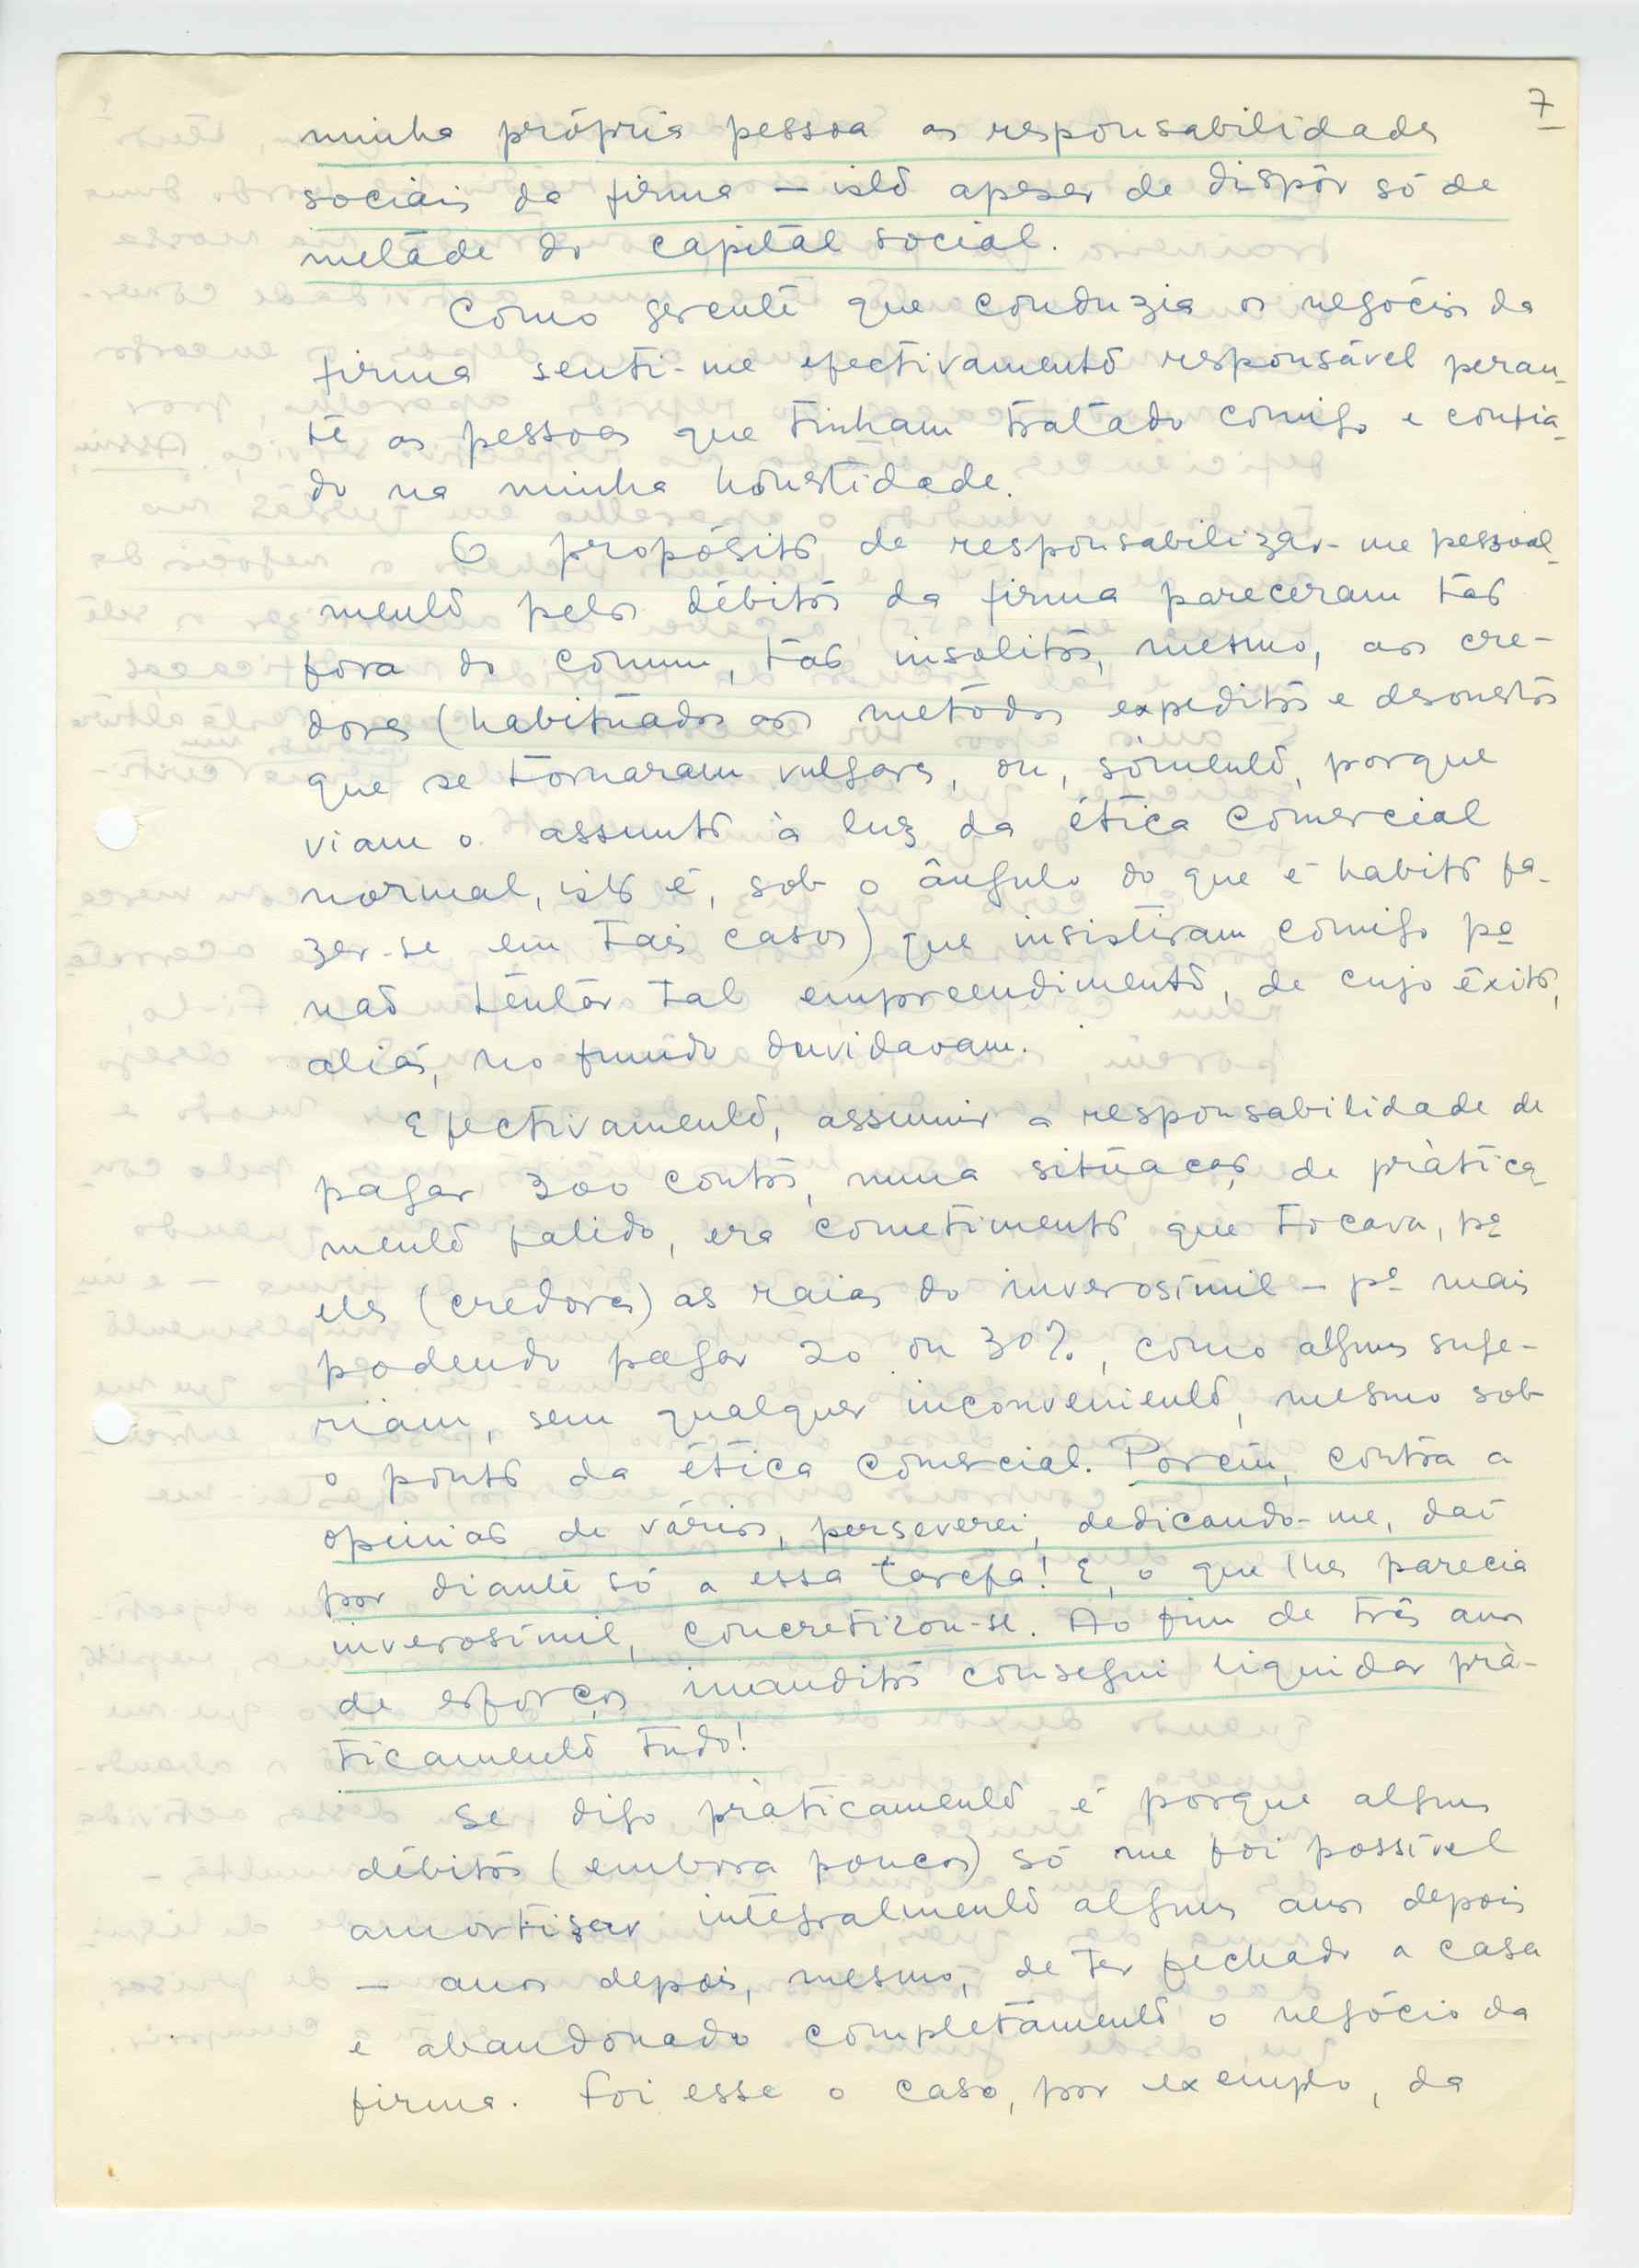 7
minha própria pessoa as responsabilidades
sociais da firma — isto apesar de dispôr só de
metade do capital social.
Como gerente que conduzia os negócios da
firma senti-me efectivamente responsável peran-
te as pessoas que tinham tratado comigo e confia-
do na minha honestidade.
O propósito de responsabilizar-me pessoal-
mente pelos débitos da firma pareceram tão
fora do comum, tão insolitos, mesmo, aos cre-
dores (habituados aos metódos expeditos e desonestos
que se tornaram vulgares, ou, sòmente, porque
viam o assunto à luz da ética comercial
normal, isto é, sob o ângulo do que é habito fa-
zer-se em tais casos) que insistiram comigo pª
não tentar tal empreendimento, de cujo êxito,
aliás, no fundo duvidavam.
Efectivamente, assumir a responsabilidade de
pagar 300 contos, numa situação de pràtica-
mente falido, era cometimento que tocava, pª
eles (credores) as raias do inverosímil — pª mais
podendo pagar 20 ou 30%, como alguns suge-
riam, sem qualquer inconveniente, mesmo sob
o ponto da ética comercial. Porém, contra a
opinião de vários, perseverei, dedicando-me, daí
por diante só a essa tarefa! E, o que lhes parecia
inverosímil, concretizou-se. Ao fim de três anos
de esforços inauditos consegui liquidar prà-
ticamente tudo!
Se digo pràticamente é porque alguns
débitos (embora poucos) só me foi possível
amortisar integralmente alguns anos depois
— anos depois, mesmo, de ter fechado a casa
e abandonado completamente o negócio da
firma. Foi esse o caso, por exemplo, da